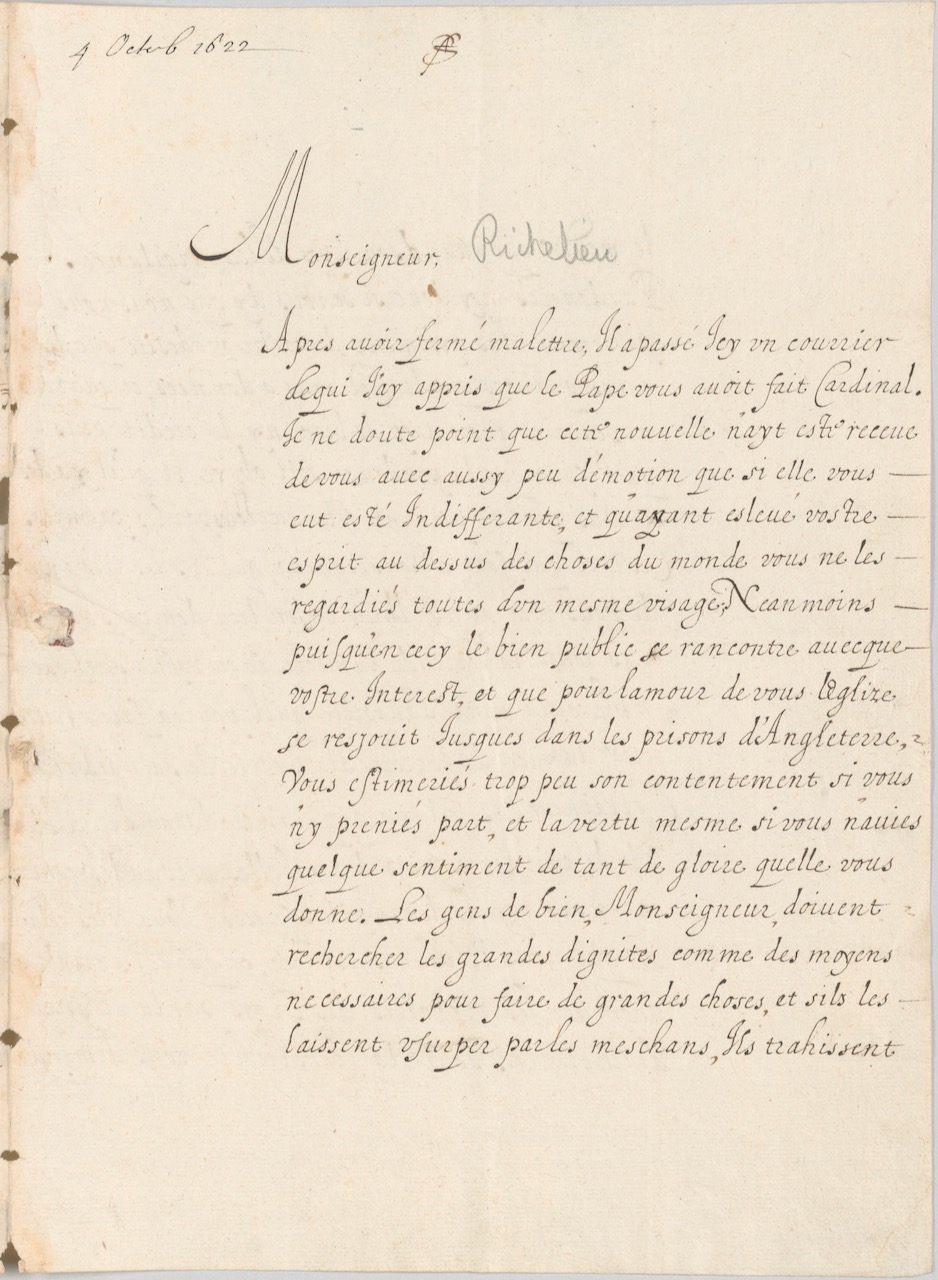 4 Octob 1622
Monseigneur, Richelieu
Apres avoir fermé malettre, Il a passé Icy vn courrier
dequi J'ay appris que le Pape vous avoit fait Cardinal.
Ie ne doute point que cete nouuelle n'ayt esté receue
de vous avec aussy peu d'émotion que si elle vous —
eut esté Indifferante, et qu'ayant esleué vostre —
esprit au dessus des choses du monde vous ne les —
regardiés toutes dvn mesme visage, Neanmoins —
puisqu'en cecy le bien public se rancontre auecque —
vostre Interest, et que pour lamour de vous l'Eglize
se resjouit Jusques dans les prisons d'Angleterre,
Vous estimeriés trop peu son contentement si vous
n'y preniés part, et lavertu mesme si vous n'auies
quelque sentiment de tant de gloire quelle vous
donne. Les gens de bien, Monseigneur, doiuent
rechercher les grandes dignites comme des moyens
necessaires pour faire de grandes choses, et sils les —
laissent vsurper par les meschans, Ils trahissent